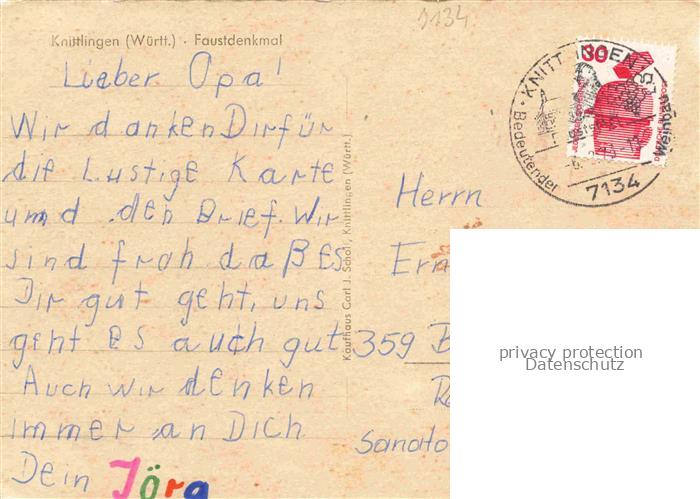 9134
Knittlingen (Württ.) · Faustdenkmal
Lieber Opa!
Wir danken Dir für
die Lustige Karte
umd den Brief. Wir
sind froh daß Es
Dir gut geht, uns
geht es auch gut
Auch wir denken
immer an Dich
Dein Jörg
Kaufhaus Carl J. Scholl, Knittlingen (Württ.)
KNITTLINGEN
Bedeutender Weinbau
7134
30
Herrn
359
Sanato
privacy protection
Datenschutz